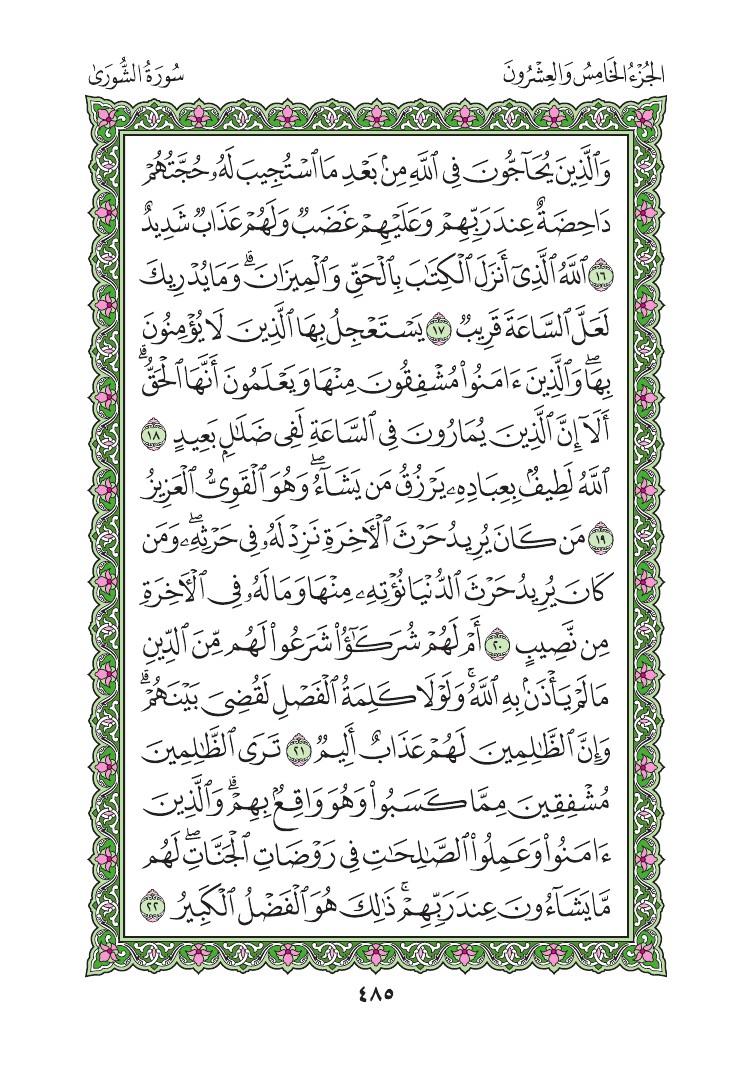 الجُزْءُ الخَامِسُ وَالعِشْرُونَ
سُورَةُ الشُّورَىٰ
وَٱلَّذِينَ يُحَآجُّونَ فِي ٱللَّهِ مِنۢ بَعْدِ مَا ٱسْتُجِيبَ لَهُۥ حُجَّتُهُمْ
دَاحِضَةٌ عِندَ رَبِّهِمْ وَعَلَيْهِمْ غَضَبٌ وَلَهُمْ عَذَابٌ شَدِيدٌ
١٦ ٱللَّهُ ٱلَّذِىٓ أَنزَلَ ٱلْكِتَٰبَ بِٱلْحَقِّ وَٱلْمِيزَانَۗ وَمَا يُدْرِيكَ
لَعَلَّ ٱلسَّاعَةَ قَرِيبٌ ١٧ يَسْتَعْجِلُ بِهَا ٱلَّذِينَ لَا يُؤْمِنُونَ
بِهَاۖ وَٱلَّذِينَ ءَامَنُوا۟ مُشْفِقُونَ مِنْهَا وَيَعْلَمُونَ أَنَّهَا ٱلْحَقُّۗ
أَلَآ إِنَّ ٱلَّذِينَ يُمَارُونَ فِى ٱلسَّاعَةِ لَفِى ضَلَٰلٍۭ بَعِيدٍ ١٨
ٱللَّهُ لَطِيفٌۢ بِعِبَادِهِۦ يَرْزُقُ مَن يَشَآءُۖ وَهُوَ ٱلْقَوِىُّ ٱلْعَزِيزُ
١٩ مَن كَانَ يُرِيدُ حَرْثَ ٱلْءَاخِرَةِ نَزِدْ لَهُۥ فِى حَرْثِهِۦۖ وَمَن
كَانَ يُرِيدُ حَرْثَ ٱلدُّنْيَا نُؤْتِهِۦ مِنْهَا وَمَا لَهُۥ فِى ٱلْءَاخِرَةِ
مِن نَّصِيبٍ ٢٠ أَمْ لَهُمْ شُرَكَٰٓؤُا۟ شَرَعُوا۟ لَهُم مِّنَ ٱلدِّينِ
مَا لَمْ يَأْذَنۢ بِهِ ٱللَّهُۚ وَلَوْلَا كَلِمَةُ ٱلْفَصْلِ لَقُضِىَ بَيْنَهُمْۗ
وَإِنَّ ٱلظَّٰلِمِينَ لَهُمْ عَذَابٌ أَلِيمٌ ٢١ تَرَى ٱلظَّٰلِمِينَ
مُشْفِقِينَ مِمَّا كَسَبُوا۟ وَهُوَ وَاقِعٌۢ بِهِمْۗ وَٱلَّذِينَ
ءَامَنُوا۟ وَعَمِلُوا۟ ٱلصَّٰلِحَٰتِ فِى رَوْضَاتِ ٱلْجَنَّاتِۖ لَهُم
مَّا يَشَآءُونَ عِندَ رَبِّهِمْۚ ذَٰلِكَ هُوَ ٱلْفَضْلُ ٱلْكَبِيرُ ٢٢
٤٨٥